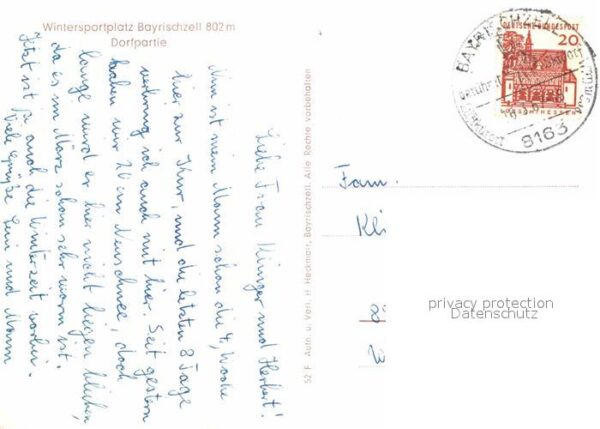 Wintersportplatz Bayrischzell 802 m
Dorfpartie
Liebe Frau Klinger und Herbert!
Nun ist mein Mann schon die 4. Woche
hier zur Kur, und die letzten 8 Tage
verbring ich auch mit hier. Seit gestern
haben wir 20 cm Neuschnee, doch
lange wird er hier nicht liegen bleiben,
da es im März schon sehr warm ist.
Jetzt ist ja auch die Winterzeit vorbei.
Viele Grüße und Mann
52 F Aufn. u. Verl. H. Heckmair, Bayrischzell. Alle Rechte vorbehalten
DEUTSCHE BUNDESPOST
20
BAYRISCHZELL
8163
Fam.
Kli
privacy protection
Datenschutz